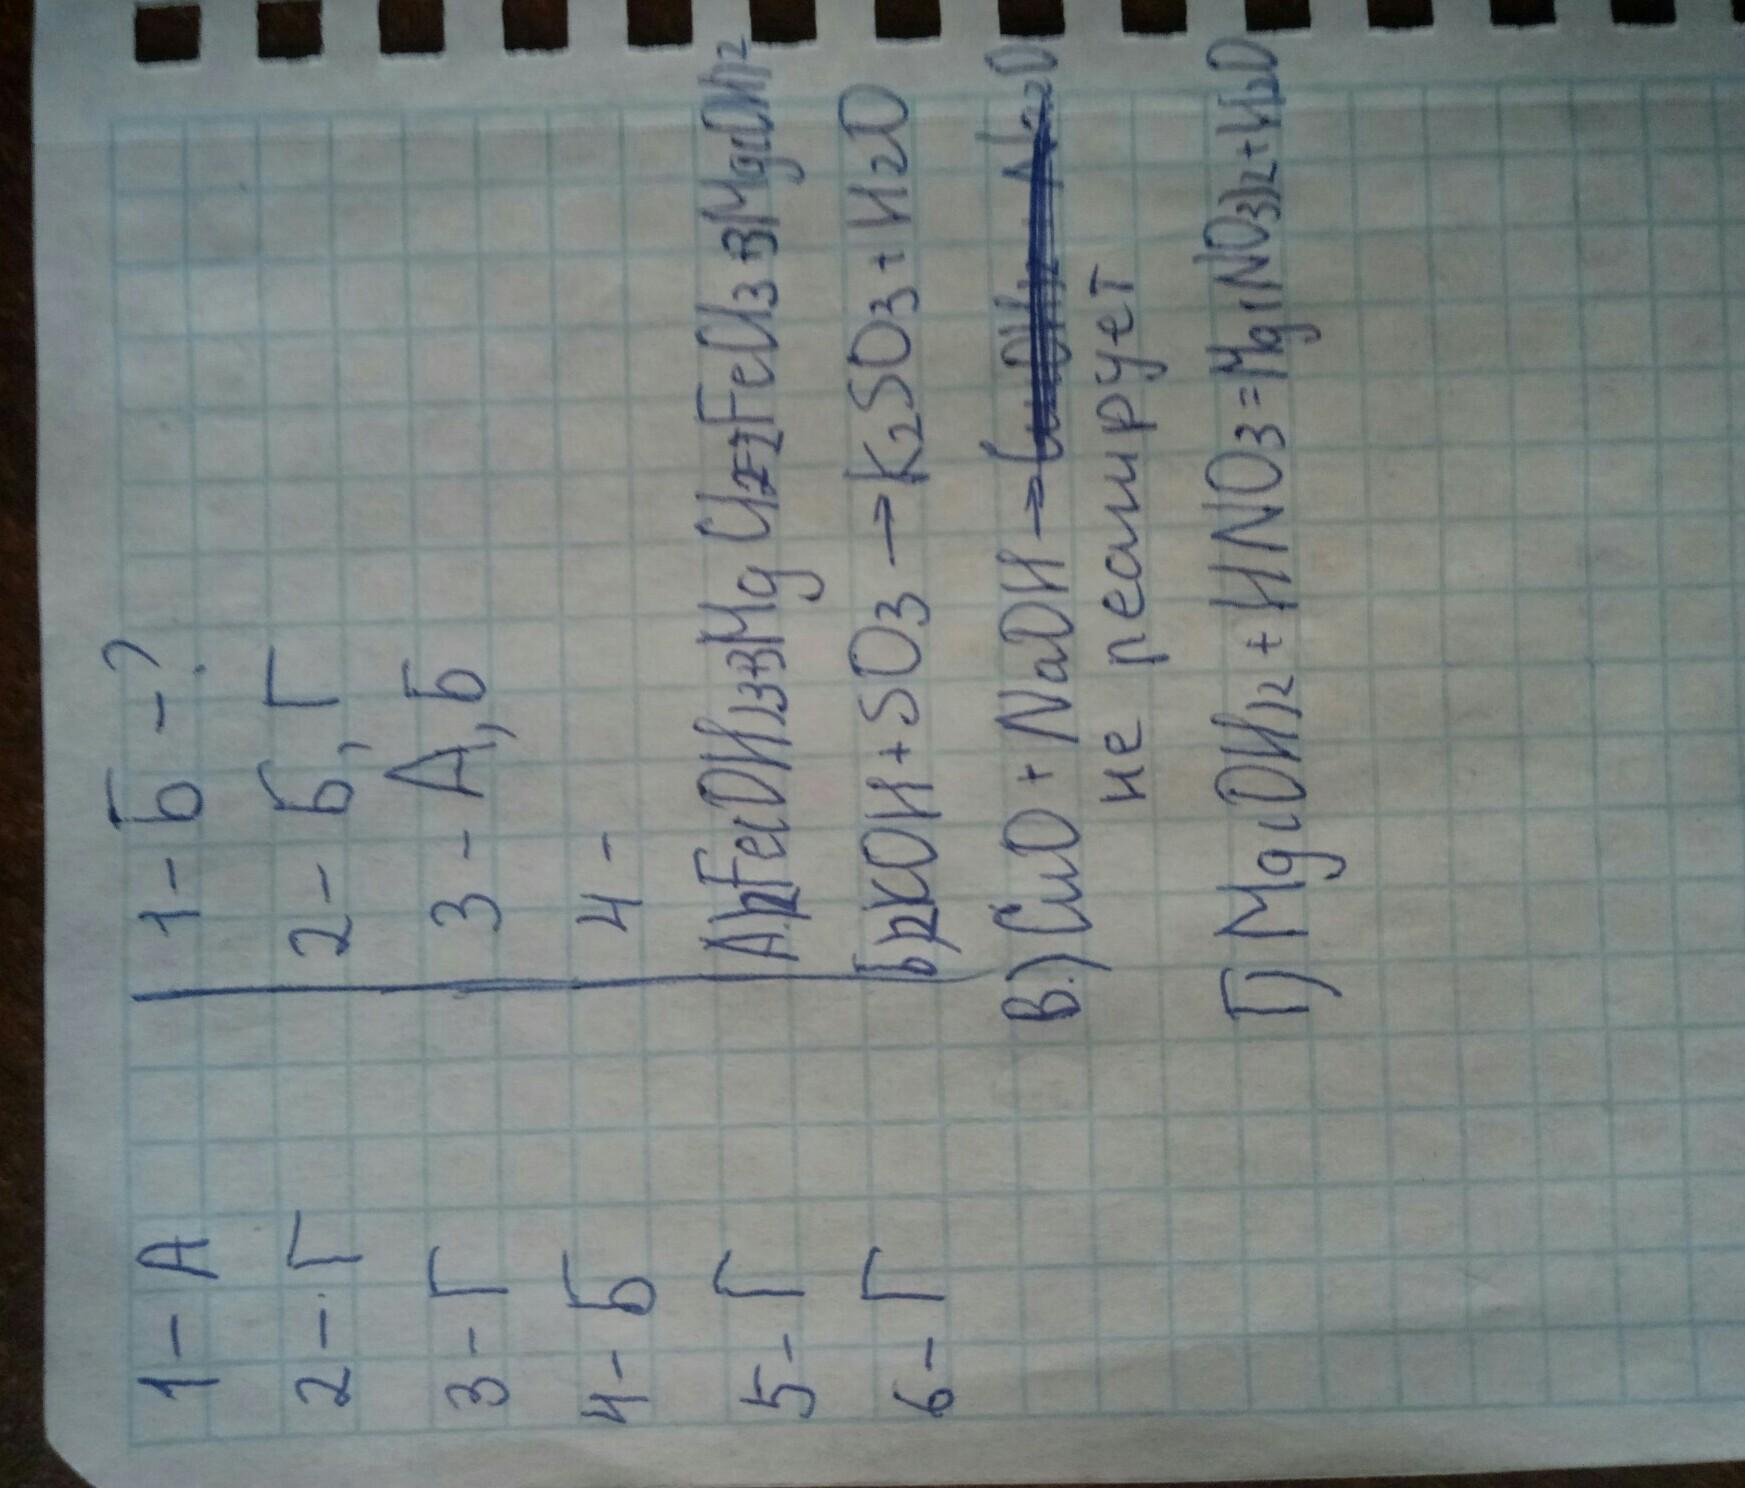 1-А
2-Г
3-Г
4-Б
5-Г
6-Г
1-Б -?
2-Б, Г
3-А, Б
4-
А)2Fe(OH)3+3MgCl2=2FeCl3+3Mg(OH)2
Б)2KOH+SO3→K2SO3+H2O
В.)CuO+NaOH→
не реагирует
Г)Mg(OH)2+HNO3=Mg(NO3)2+H2O